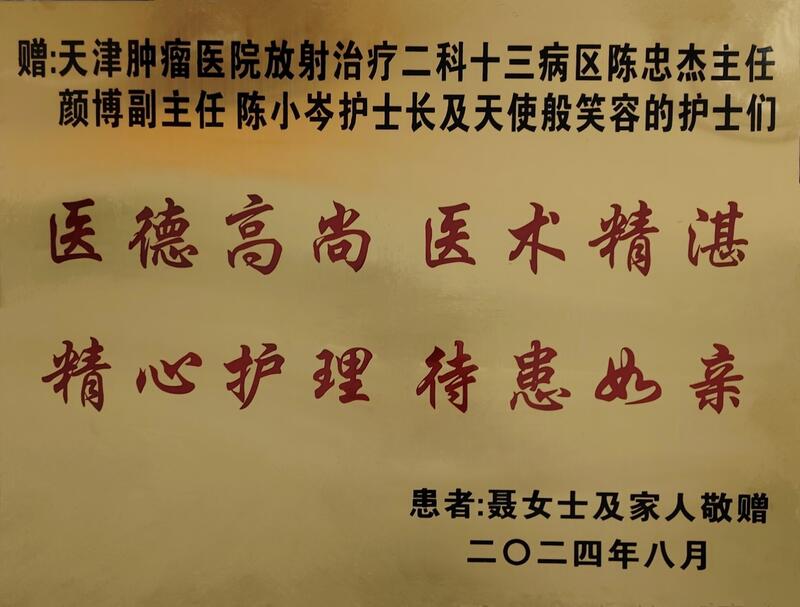 赠:天津肿瘤医院放射治疗二科十三病区陈忠杰主任
颜博副主任 陈小岑护士长及天使般笑容的护士们
医德高尚 医术精湛
精心护理 待患如亲
患者:聂女士及家人敬赠
二〇二四年八月